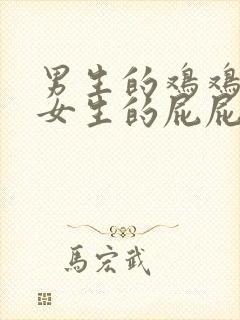 男生的鸡鸡
女生的屁屁
馬宏武